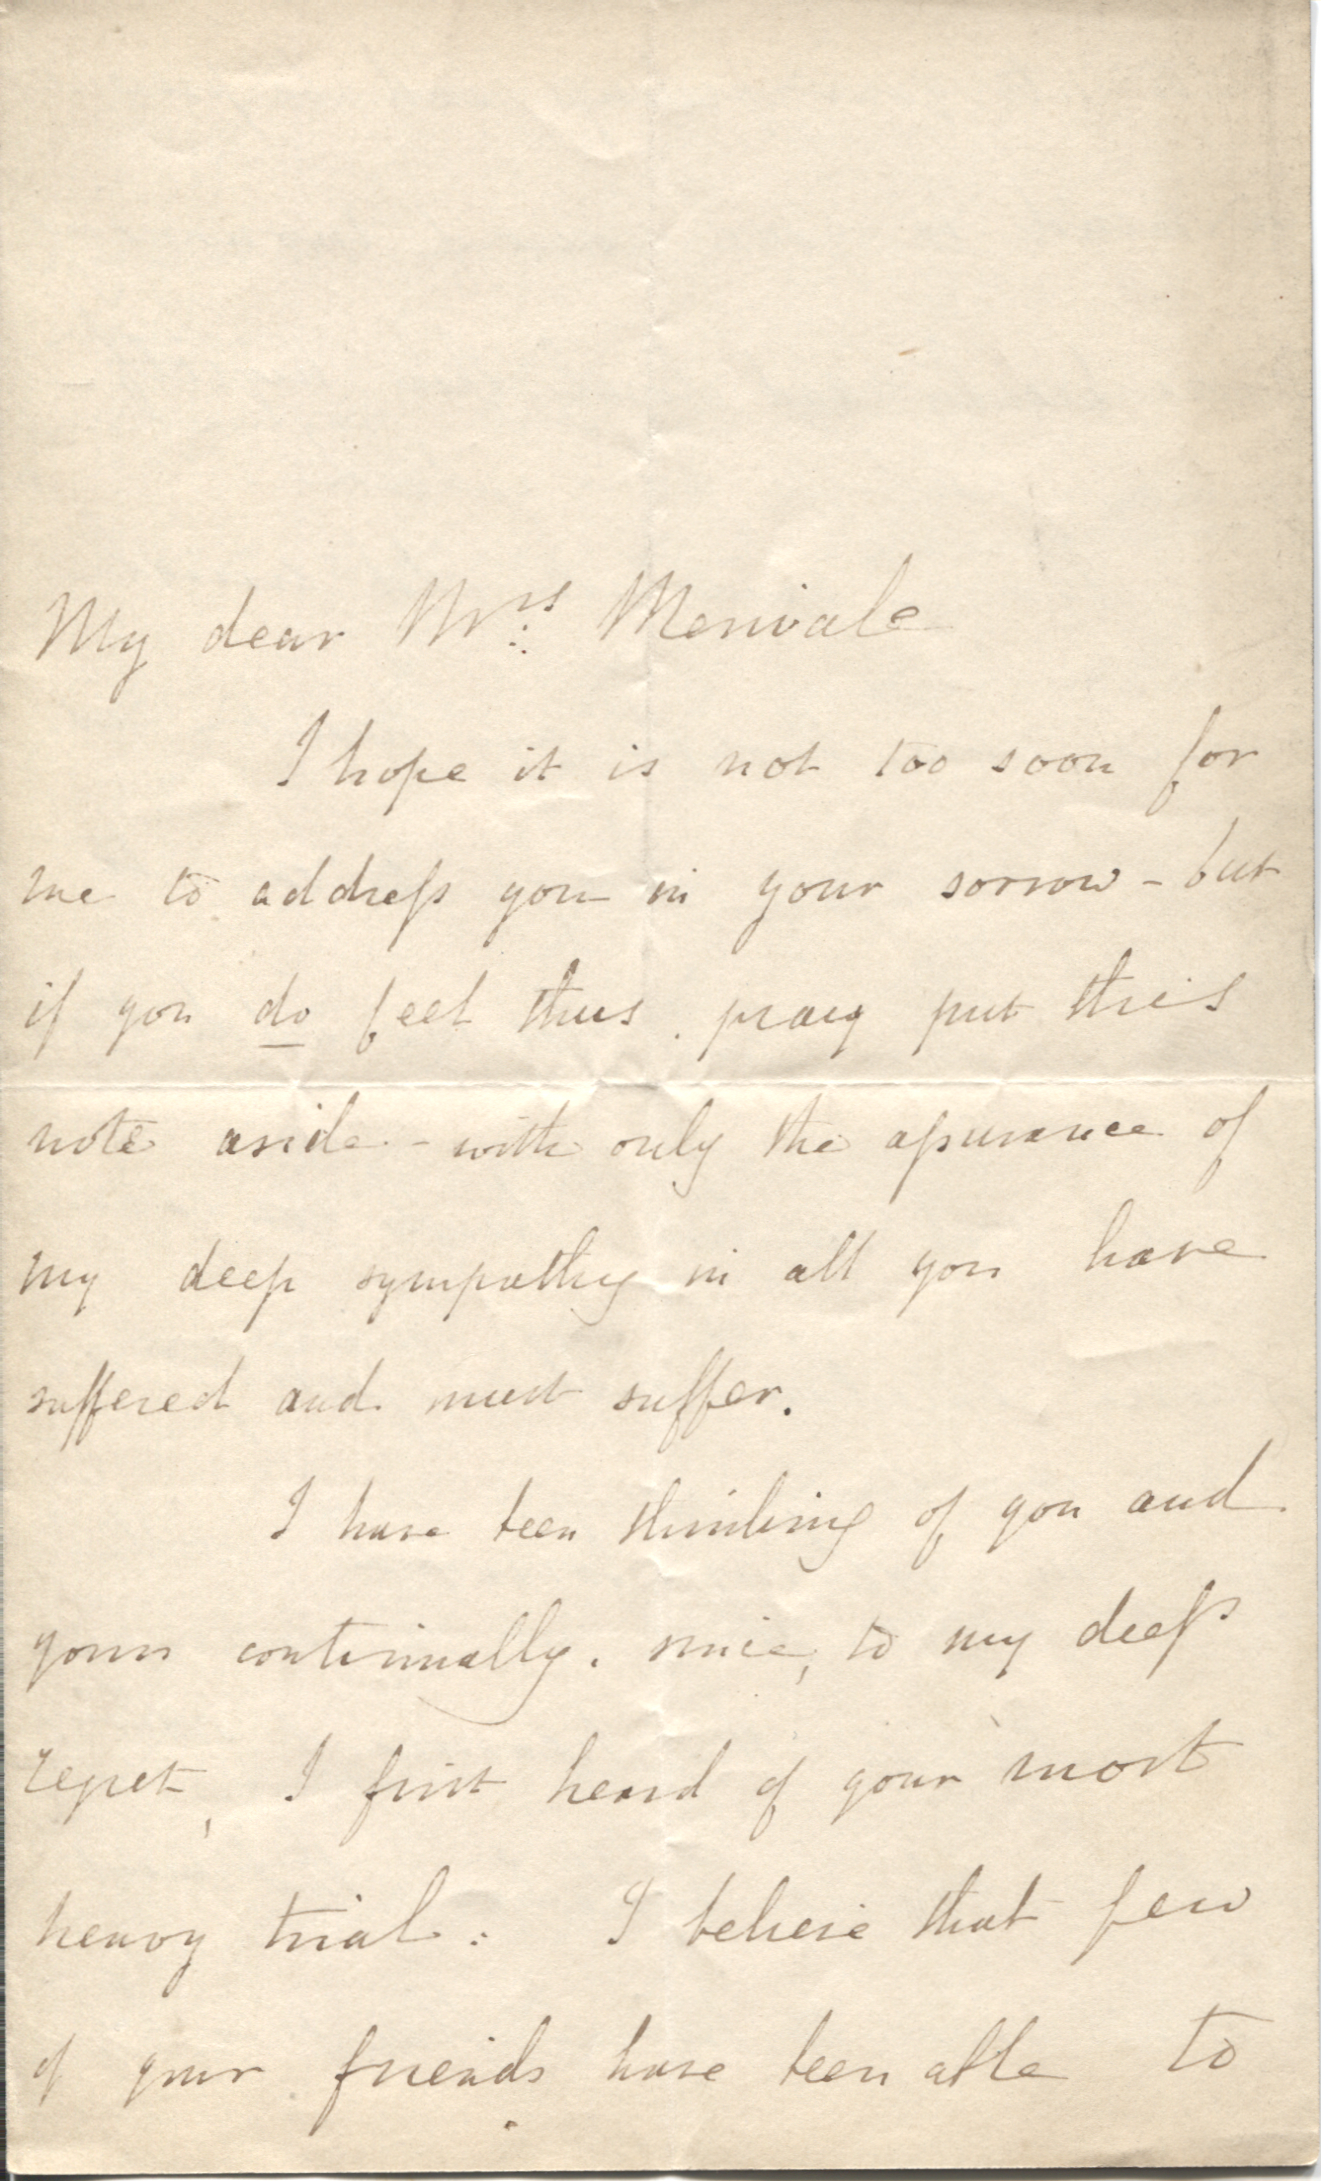 My dear Mrs Merivale
I hope it is not too soon for
me to address you in your sorrow - but
if you do feel thus, pray put this
note aside - with only the assurance of
my deep sympathy in all you have
suffered and must suffer.
I have been thinking of you and
yours continually. since, to my deep
regret, I first heard of your most
heavy trial. I believe that few
of your friends have been able to